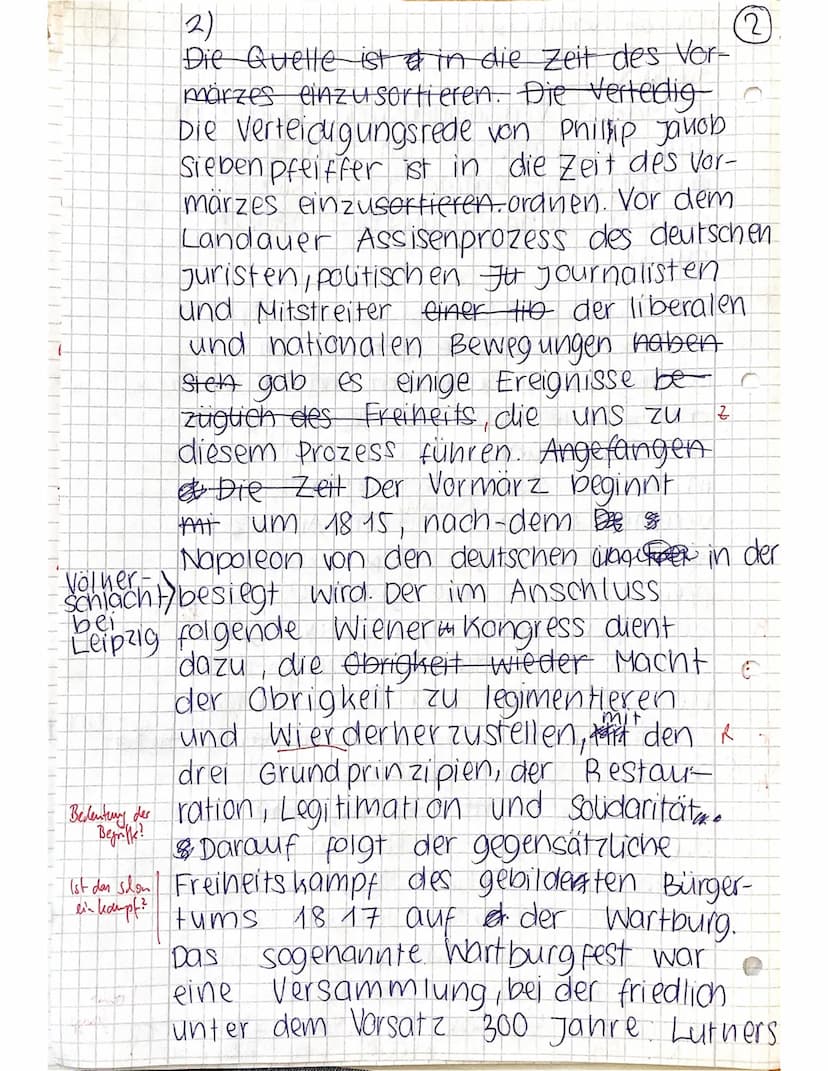 2)
2
Die Quelle ist in die Zeit des Vor-
märzes einzusortieren. Die Verteidig
Die Verteidigungsrede von Philip Jakob
Siebenpfeiffer ist in die Zeit des Vor-
märzes einzusortieren.ordnen. Vor dem
Landauer Assisenprozess des deutschen
Juristen, politischen Ju Journalisten
und Mitstreiter einer lib der liberalen
und nationalen Bewegungen haben
sten gab es einige Ereignisse be-
züglich des Freiheits, die uns zu
Z
diesem Prozess führen. Angefangen
Die Zeit Der Vormärz beginnt
mi um 1815, nach-dem
Napoleon von den deutschen in der
Völker-
schlacht
bei
Leipzig
besiegt wird. Der im Anschluss
folgende Wiener Kongress dient
dazu, die Obrigkeit wieder Macht
der Obrigkeit zu legimentieren
und Wierderherzustellen, mit den
R
drei Grundprinzipien, der Restau-
ration, Legitimation und Solidarität.
Bedeutung der
Begriffe?
Darauf folgt der gegensätzliche
Freiheitskampf des gebildeten Bürger-
Ist das schon
ein Kampf?
tums 1817 auf der Wartburg.
Das sogenannte Wartburgfest war
eine Versammlung, bei der friedlich
unter dem Vorsatz 300 Jahre Luthers